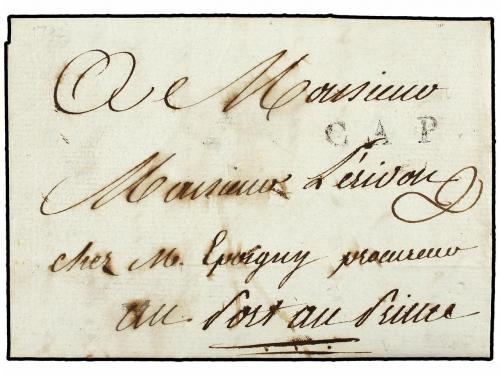 A Monsieur
CAP
Monsieur Lérivou
chez M. Eporgny procureur
au Port au Prince